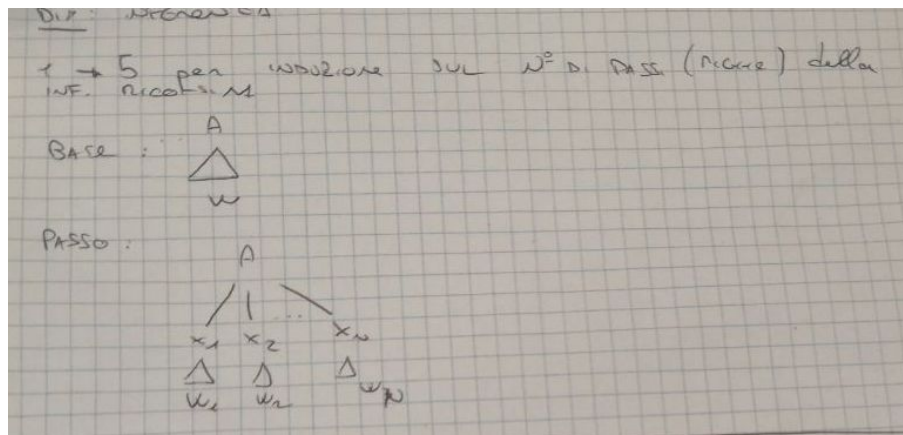 DIM : INFERENZA
1 → 5 per INDUZIONE SUL N° DI PASSI (righe) della
INF. RICORSIVA
BASE :
A
w
PASSO :
A
...
x1 x2 xN
w1 w2 wN